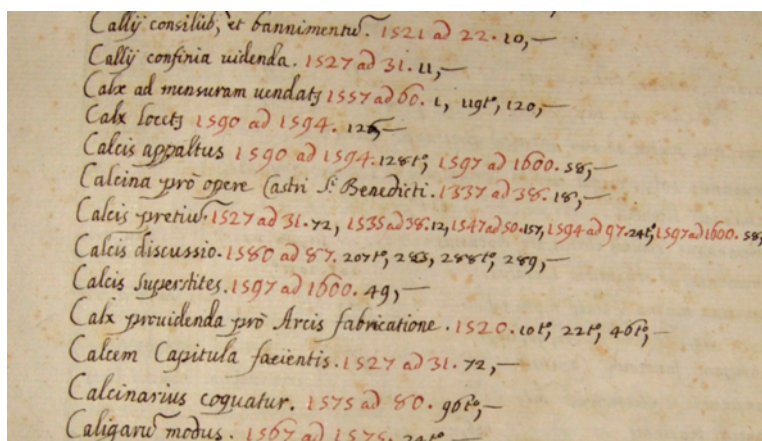 Callij consiliũ, et bannimentũ. 1521 ad 22. 10,—
Callij confinia uidenda. 1527 ad 31. 11,—
Calx ad mensuram uendatʒ 1557 ad 60. 1, 119tº, 120,—
Calx locetʒ 1590 ad 1594. —
Calcis appaltus 1590 ad 1594. 128tº, 1597 ad 1600. 58,—
Calcina prò opere Castri Sᵗⁱ Benedicti. 1337 ad 38. 18,—
Calcis pretiũ. 1527 ad 31. 72, 1535 ad 38. 12, 1547 ad 50. 157, 1594 ad 97. 24tº, 1597 ad 1600. 58,
Calcis discussio. 1580 ad 87. 207tº, 283, 288tº, 289,—
Calcis superstites. 1597 ad 1600. 49,—
Calx prouidenda prò Arcis fabricatione. 1520. 10tº, 22tº, 46tº,—
Calcem Capitula facientis. 1527 ad 31. 72,—
Calcinarius coquatur. 1575 ad 80. 96tº,—
Caligarũ modus. 1567 ad 1575. 24tº—